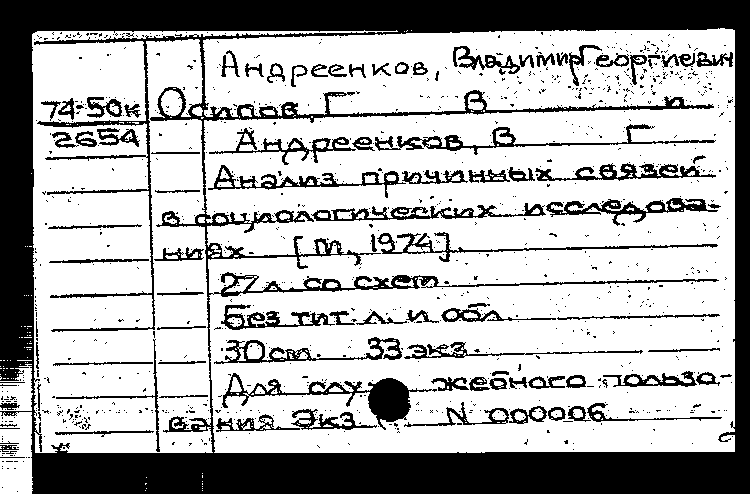 Андреенков, Владимир Георгиевич
74-50к Осипов, Г В п
2654 Андреенков, В Г
Анализ причинных связей
в социологических исследова-
ниях. [М., 1974].
27 л. со схем.
Без тит. л. и обл.
30 см. 33 экз.
Для служебного пользо-
вания Экз N 000006